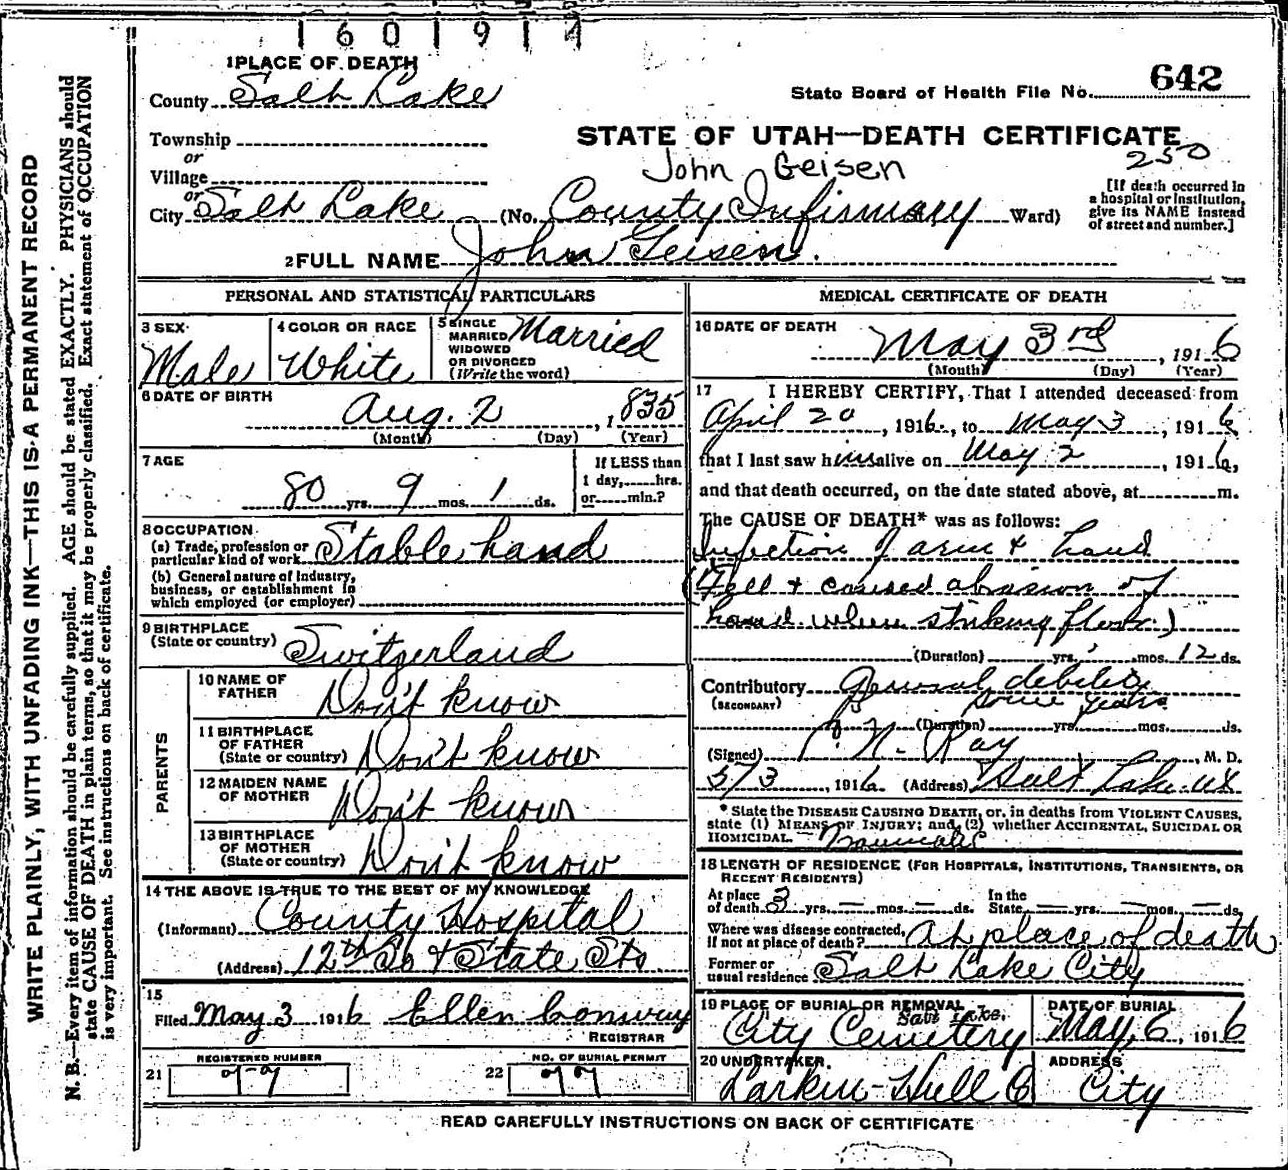 1601917
1 PLACE OF DEATH
County Salt Lake
State Board of Health File No. 642
Township
or
Village
or
City Salt Lake (No. County Infirmary Ward)
STATE OF UTAH—DEATH CERTIFICATE
John Geisen
250
[If death occurred in
a hospital or institution,
give its NAME instead
of street and number.]
2 FULL NAME John Geisen.
PERSONAL AND STATISTICAL PARTICULARS
3 SEX
Male
4 COLOR OR RACE
White
5 SINGLE
MARRIED
WIDOWED
OR DIVORCED
(Write the word)
Married
6 DATE OF BIRTH
Aug. 2, 1835
(Month) (Day) (Year)
7 AGE
80 yrs. 9 mos. 1 ds.
If LESS than
1 day,.....hrs.
or.....min.?
8 OCCUPATION
(a) Trade, profession or
particular kind of work Stable hand
(b) General nature of industry,
business, or establishment in
which employed (or employer)
9 BIRTHPLACE
(State or country) Switzerland
PARENTS
10 NAME OF
FATHER Don't know
11 BIRTHPLACE
OF FATHER
(State or country) Don't know
12 MAIDEN NAME
OF MOTHER Don't know
13 BIRTHPLACE
OF MOTHER
(State or country) Don't know
14 THE ABOVE IS TRUE TO THE BEST OF MY KNOWLEDGE
(Informant) County Hospital
(Address) 12th So & State Sts
15
Filed May 3 1916 Ellen Conway
REGISTRAR
REGISTERED NUMBER
21
NO. OF BURIAL PERMIT
22
MEDICAL CERTIFICATE OF DEATH
16 DATE OF DEATH
May 3rd, 1916
(Month) (Day) (Year)
17 I HEREBY CERTIFY, That I attended deceased from
April 20, 1916, to May 3, 1916
that I last saw him alive on May 2, 1916,
and that death occurred, on the date stated above, at m.
The CAUSE OF DEATH* was as follows:
Infection of arm & hand
(Fell & caused abrasion of
hand when striking floor.)
(Duration) yrs. mos. 12 ds.
Contributory General debility
(SECONDARY) some years
(Duration) yrs. mos. ds.
(Signed) N. Ray, M. D.
5/3, 1916 (Address) Salt Lake. Ut
* State the DISEASE CAUSING DEATH, or, in deaths from VIOLENT CAUSES,
state (1) MEANS OF INJURY; and (2) whether ACCIDENTAL, SUICIDAL OR
HOMICIDAL.
18 LENGTH OF RESIDENCE (FOR HOSPITALS, INSTITUTIONS, TRANSIENTS, OR
RECENT RESIDENTS)
At place
of death 3 yrs. — mos. — ds. In the
State — yrs. — mos. — ds.
Where was disease contracted,
if not at place of death? At place of death
Former or
usual residence Salt Lake City
19 PLACE OF BURIAL OR REMOVAL
Salt Lake.
City Cemetery
DATE OF BURIAL
May 6, 1916
20 UNDERTAKER
Larkin-Hull
ADDRESS
City
READ CAREFULLY INSTRUCTIONS ON BACK OF CERTIFICATE
WRITE PLAINLY, WITH UNFADING INK—THIS IS A PERMANENT RECORD
N. B.—Every item of information should be carefully supplied. AGE should be stated EXACTLY. PHYSICIANS should
state CAUSE OF DEATH in plain terms, so that it may be properly classified. Exact statement of OCCUPATION
is very important. See instructions on back of certificate.